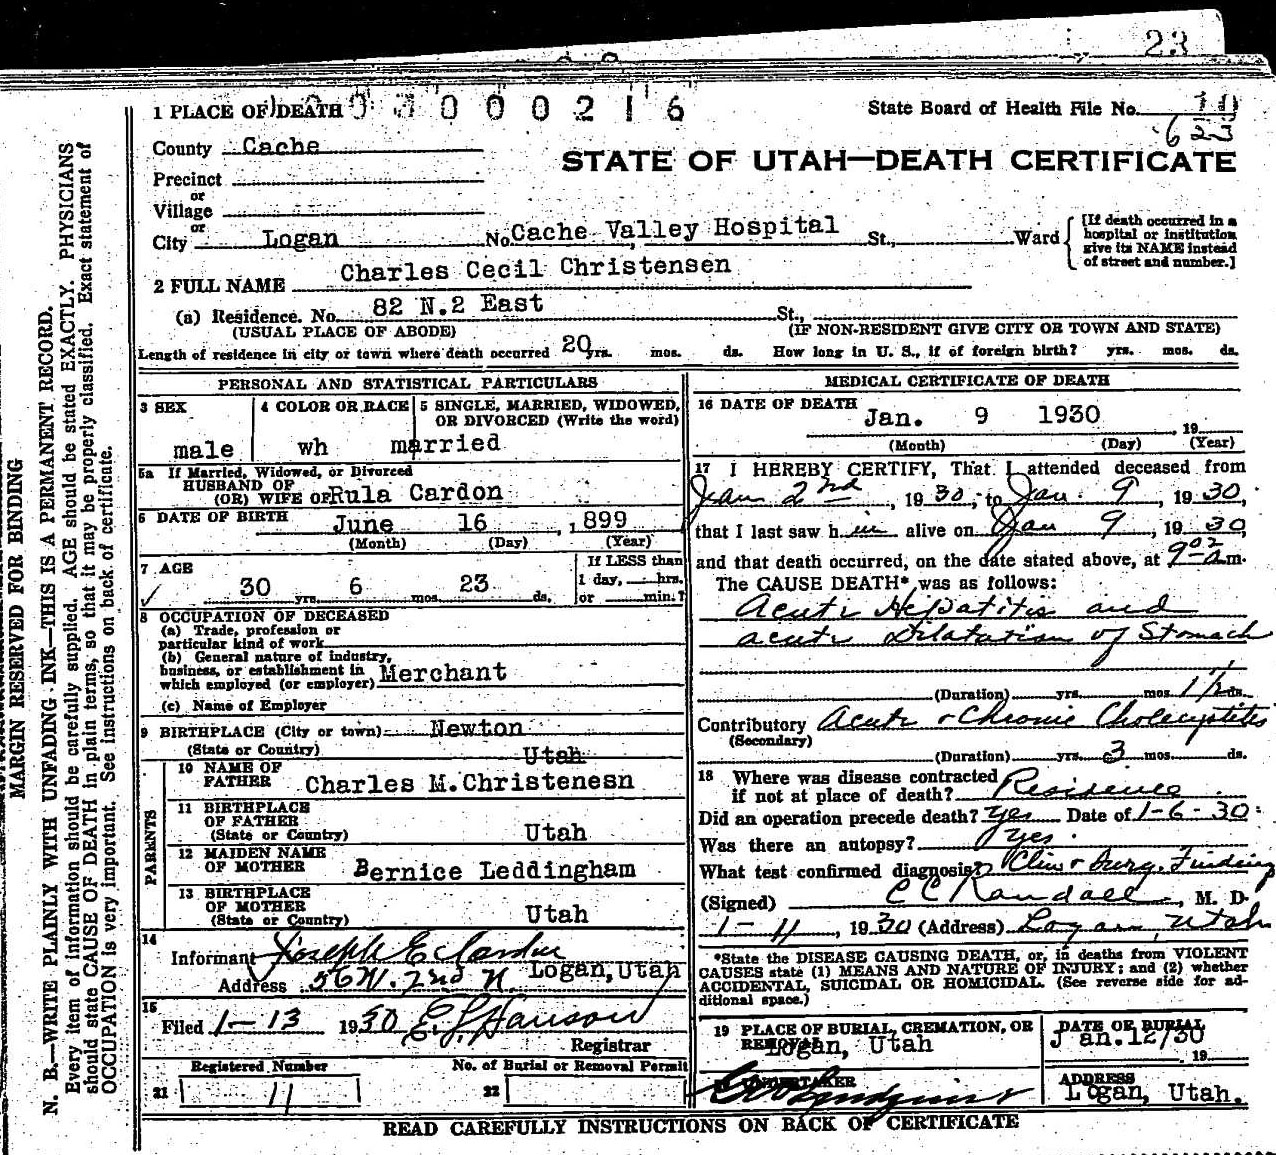 23
1 PLACE OF DEATH 000216
State Board of Health File No. 10
623
County Cache
STATE OF UTAH—DEATH CERTIFICATE
Precinct
or
Village
or
City Logan No. Cache Valley Hospital St., Ward
[If death occurred in a
hospital or institution
give its NAME instead
of street and number.]
2 FULL NAME Charles Cecil Christensen
(a) Residence. No. 82 N.2 East St.,
(USUAL PLACE OF ABODE) (IF NON-RESIDENT GIVE CITY OR TOWN AND STATE)
Length of residence in city or town where death occurred 20 yrs. mos. ds. How long in U. S., if of foreign birth? yrs. mos. ds.
PERSONAL AND STATISTICAL PARTICULARS
3 SEX
male
4 COLOR OR RACE
wh
5 SINGLE, MARRIED, WIDOWED,
OR DIVORCED (Write the word)
married
5a If Married, Widowed, or Divorced
HUSBAND OF
(OR) WIFE OF Rula Cardon
6 DATE OF BIRTH June 16, 1899
(Month) (Day) (Year)
7 AGE
30 yrs. 6 mos. 23 ds.
If LESS than
1 day, hrs.
or min.?
8 OCCUPATION OF DECEASED
(a) Trade, profession or
particular kind of work
(b) General nature of industry,
business, or establishment in
which employed (or employer) Merchant
(c) Name of Employer
9 BIRTHPLACE (City or town) Newton
(State or Country) Utah
PARENTS
10 NAME OF
FATHER Charles M.Christenesn
11 BIRTHPLACE
OF FATHER
(State or Country) Utah
12 MAIDEN NAME
OF MOTHER Bernice Leddingham
13 BIRTHPLACE
OF MOTHER
(State or Country) Utah
14
Informant Joseph E Cardon
Address 56 W. 2nd N. Logan, Utah
15
Filed 1-13 1930 E. L. Hanson
Registrar
Registered Number No. of Burial or Removal Permit
21 11 22
MEDICAL CERTIFICATE OF DEATH
16 DATE OF DEATH
Jan. 9 1930, 19
(Month) (Day) (Year)
17 I HEREBY CERTIFY, That I attended deceased from
Jan 2nd, 1930, to Jan. 9, 1930,
that I last saw h im alive on Jan 9, 1930
and that death occurred, on the date stated above, at 9 02 a m.
The CAUSE DEATH* was as follows:
Acute Hepatitis and
acute Dilatation of Stomach
(Duration) yrs. mos. 1 1/2 ds.
Contributory Acute & Chronic Cholecystitis
(Secondary)
(Duration) yrs. 3 mos. ds.
18 Where was disease contracted
if not at place of death? Residence
Did an operation precede death? yes Date of 1-6-30
Was there an autopsy? yes.
What test confirmed diagnosis? Clin & Surg. Finding
(Signed) C C Randall, M. D.
1-11, 1930 (Address) Logan, Utah
*State the DISEASE CAUSING DEATH, or, in deaths from VIOLENT
CAUSES state (1) MEANS AND NATURE OF INJURY; and (2) whether
ACCIDENTAL, SUICIDAL OR HOMICIDAL. (See reverse side for ad-
ditional space.)
19 PLACE OF BURIAL, CREMATION, OR
REMOVAL
Logan, Utah
DATE OF BURIAL
Jan.12/30
19
UNDERTAKER
ADDRESS
Logan, Utah.
READ CAREFULLY INSTRUCTIONS ON BACK OF CERTIFICATE
MARGIN RESERVED FOR BINDING
N. B.—WRITE PLAINLY WITH UNFADING INK—THIS IS A PERMANENT RECORD.
Every item of information should be carefully supplied. AGE should be stated EXACTLY. PHYSICIANS
should state CAUSE OF DEATH in plain terms, so that it may be properly classified. Exact statement of
OCCUPATION is very important. See instructions on back of certificate.